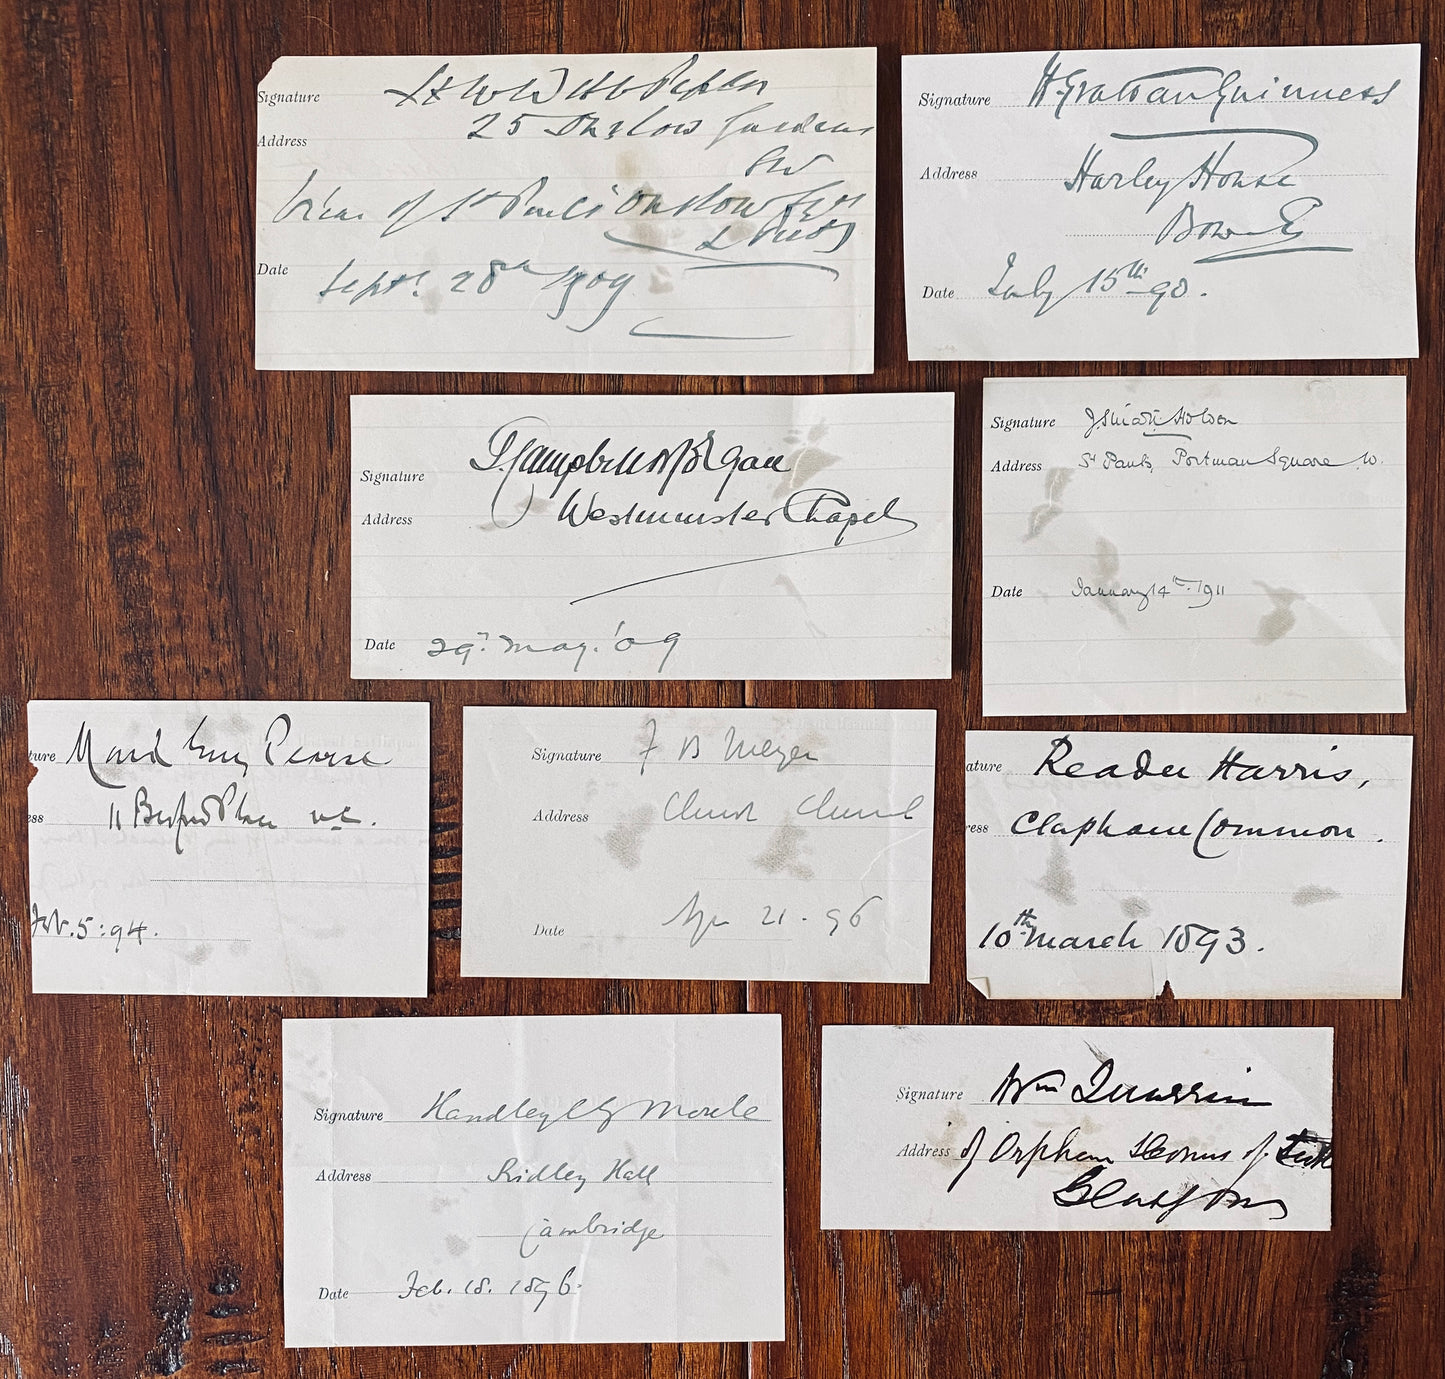 Signature H W W Webb Peploe
Address 25 Onslow Gardens
SW
Vicar of St Paul's Onslow Sqre
London
Date Septr. 28th 1909
Signature H. Grattan Guinness
Address Harley House
Bow E
Date July 15th 90.
Signature G. Campbell Morgan
Address Westminster Chapel
Date 29. May. '09
Signature J. Stuart Holden
Address St Pauls, Portman Square W.
Date January 14th 1911
ture Mark Guy Pearse
ess 11 Bedford Place W.C.
Feb. 5: 94.
Signature F B Meyer
Address Christ Church
Date 21 - 96
ature Reader Harris,
ress Clapham Common.
10th March 1893.
Signature Handley C G Moule
Address Ridley Hall
Cambridge
Date Feb. 18. 1896.
Signature Wm Quarrier
Address of Orphan Homes of
Glasgow